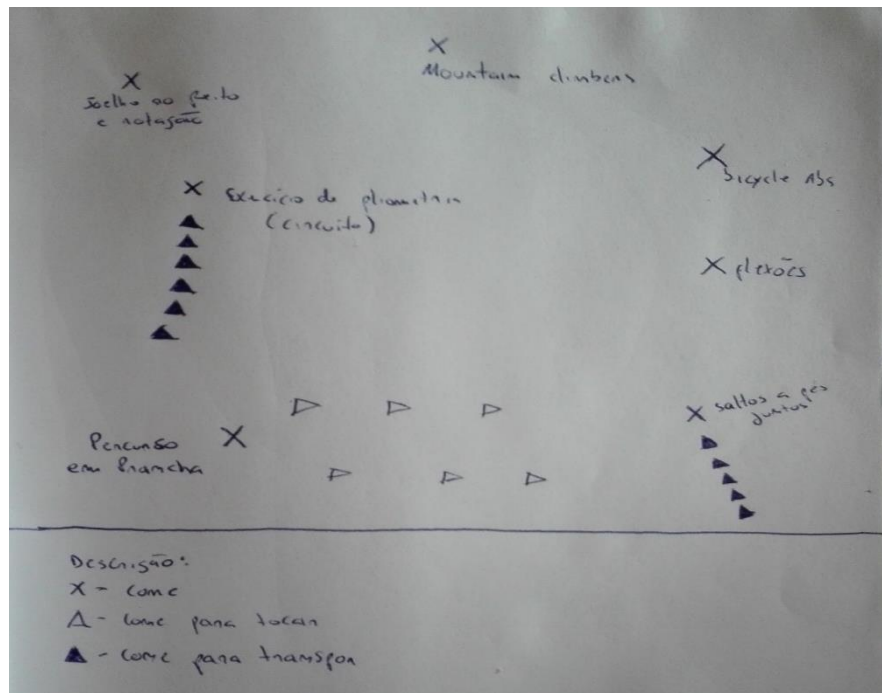 Mountain climbers
Joelho ao peito
e rotação
Bicycle Abs
Exercício de pliometria
(circuito)
flexões
saltos a pés
juntos
Percurso
em Prancha
Descrição:
X - Cone
△ - Cone para tocar
▲ - Cone para transpor